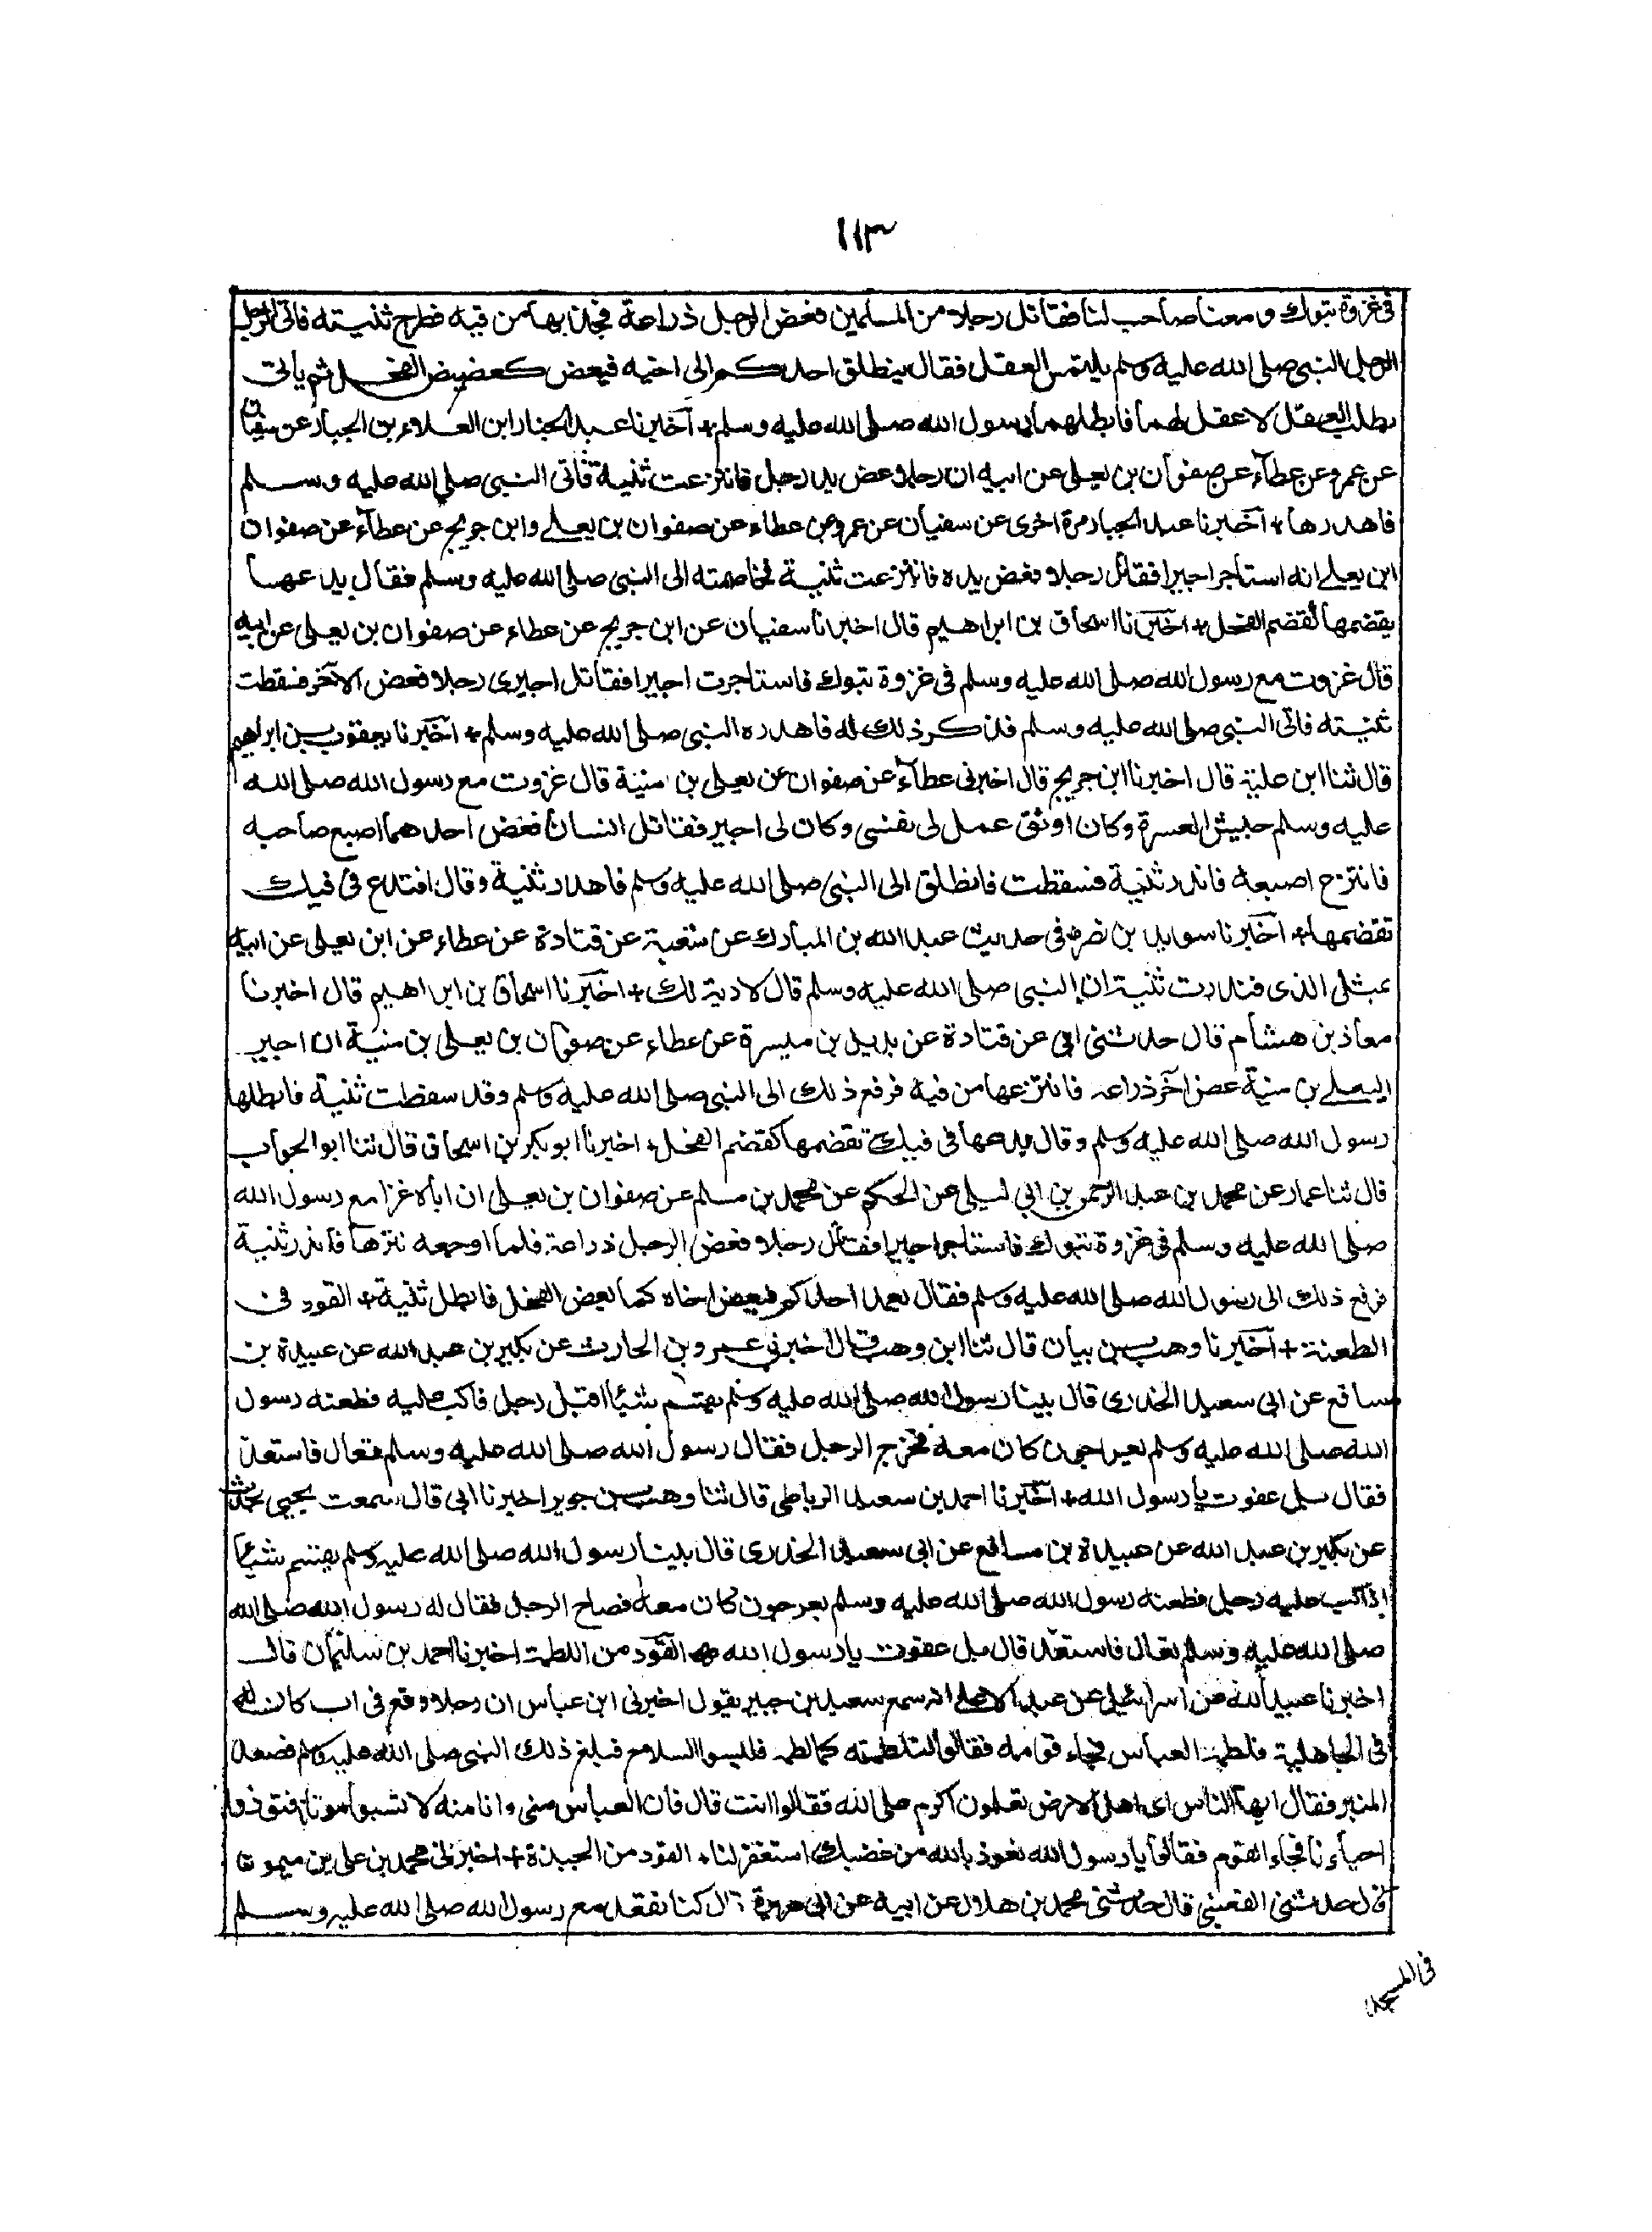 ١١٣
فى غزوة تبوك ومعنا صاحب لنا فقاتل رجلا من المسلمين فعض الرجل ذراعه فجذبها من فيه فطرح ثنيته فاتى الرجل
الرجل النبى صلى الله عليه وسلم يلتمس العقل فقال ينطلق احدكم الى اخيه فيعض كعضيض الفحل ثم ياتى
يطلب العقل لا عقل لهما فابطلهما رسول الله صلى الله عليه وسلم + اخبرنا عبد الجبار ابن العلاء بن الجبار عن سفيان
عن عمرو عن عطاء عن صفوان بن يعلى عن ابيه ان رجلا عض يد رجل فانتزعت ثنية فاتى النبى صلى الله عليه وسلم
فاهدرها + اخبرنا عبد الجبار مرة اخرى عن سفيان عن عمرو عن عطاء عن صفوان بن يعلى وابن جريج عن عطاء عن صفوان
ابن يعلى انه استاجر اجيرا فقاتل رجلا فعض يده فانتزعت ثنية فخاصمته الى النبى صلى الله عليه وسلم فقال يدعها
يقضمها كقضم الفحل + اخبرنا اسحاق بن ابراهيم قال اخبرنا سفيان عن ابن جريج عن عطاء عن صفوان بن يعلى عن ابيه
قال غزوت مع رسول الله صلى الله عليه وسلم فى غزوة تبوك فاستاجرت اجيرا فقاتل اجيرى رجلا فعض الآخر فسقطت
ثنيته فاتى النبى صلى الله عليه وسلم فذكر ذلك له فاهدره النبى صلى الله عليه وسلم + اخبرنا يعقوب بن ابراهيم
قال ثنا ابن علية قال اخبرنا ابن جريج قال اخبرنى عطاء عن صفوان عن يعلى بن منية قال غزوت مع رسول الله صلى الله
عليه وسلم جيش العسرة وكان اوثق عمل لى نفسى وكان لى اجير فقاتل انسانا فعض احدهما اصبع صاحبه
فانتزع اصبعه فاندر ثنية فسقطت فانطلق الى النبى صلى الله عليه وسلم فاهدر ثنية وقال افتدع فى فيك
تقضمها + اخبرنا سويد بن نصر فى حديث عبد الله بن المبارك عن شعبة عن قتادة عن عطاء عن ابن يعلى عن ابيه
بمثلى الذى فندرت ثنية ان النبى صلى الله عليه وسلم قال لا دية لك + اخبرنا اسحاق بن ابراهيم قال اخبرنا
معاذ بن هشام قال حدثنى ابى عن قتادة عن بديل بن ميسرة عن عطاء عن صفوان بن يعلى بن منية ان اجير
ليعلى بن منية عض آخر ذراعه فانتزعها من فيه فرفع ذلك الى النبى صلى الله عليه وسلم وقد سقطت ثنية فابطلها
رسول الله صلى الله عليه وسلم وقال يدعها فى فيك تقضمها كقضم الفحل اخبرنا ابو بكر بن اسحاق قال ثنا ابو الجواب
قال ثنا عمار عن محمد بن عبد الرحمن بن ابى ليلى عن الحكم عن محمد بن مسلم عن صفوان بن يعلى ان اباه غزا مع رسول الله
صلى الله عليه وسلم فى غزوة تبوك فاستاجر اجيرا فقاتل رجلا فعض الرجل ذراعة فلما اوجعه نترها فاندر ثنية
فرفع ذلك الى رسول الله صلى الله عليه وسلم فقال يعمد احدكم فيعض اخاه كما يعض الفحل فابطل ثنية + القود فى
الطعنة + اخبرنا وهب بن بيان قال ثنا ابن وهب قال اخبرنى عمرو بن الحارث عن بكير بن عبد الله عن عبيدة بن
مسافع عن ابى سعيد الخدرى قال بينا رسول الله صلى الله عليه وسلم يقسم شيئا اقبل رجل فاكب عليه فطعنه رسول
الله صلى الله عليه وسلم بعراجون كان معه فخرج الرجل فقال رسول الله صلى الله عليه وسلم تعال فاستقد
فقال بل عفوت يا رسول الله + اخبرنا احمد بن سعيد الرباطى قال ثنا وهب بن جرير اخبرنا ابى قال سمعت يحيى يحدث
عن بكير بن عبد الله عن عبيدة بن مسافع عن ابى سعيد الخدرى قال بينا رسول الله صلى الله عليه وسلم يقسم شيئا
اذ اكب عليه رجل فطعنه رسول الله صلى الله عليه وسلم بعرجون كان معه فصاح الرجل فقال له رسول الله صلى الله
صلى الله عليه وسلم تعال فاستقد قال بل عفوت يا رسول الله القود من اللطمة اخبرنا احمد بن سليمان قال
اخبرنا عبيد الله عن اسرائيل عن عبد الاعلى انه سمع سعيد بن جبير يقول اخبرنى ابن عباس ان رجلا وقع فى اب كان له
فى الجاهلية فلطمه العباس فجاء قومه فقالوا لتلطمنه كما لطمه فلبسوا السلاح فبلغ ذلك النبى صلى الله عليه وسلم فصعد
المنبر فقال ايها الناس اى اهل الارض تعلمون اكرم على الله فقالوا انت قال فان العباس منى وانا منه لا تسبوا موتانا فتوذوا
احياءنا فجاء القوم فقالوا يا رسول الله نعوذ بالله من غضبك استغفر لنا + القود من الجبذة + اخبرنى محمد بن على بن ميمون
قال حدثنى القعنبى قال حدثنى محمد بن هلال عن ابيه عن ابى هريرة قال كنا نقعد مع رسول الله صلى الله عليه وسلم
فى المسجد